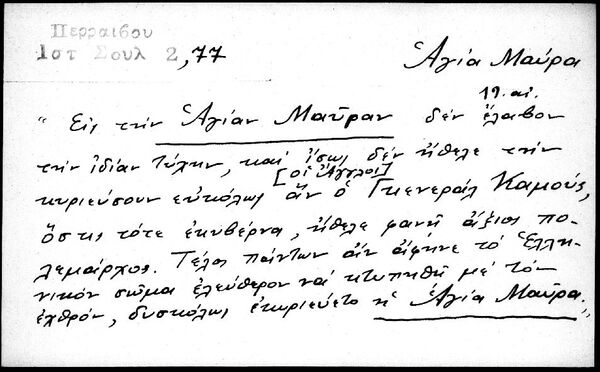 Περραιβου
Ιστ Σουλ 2,77
Ἁγία Μαύρα
19. αἰ.
"Εἰς τὴν Ἁγίαν Μαῦραν δὲν ἔλαβον
τὴν ἰδίαν τύχην, καὶ ἴσως δὲν ἤθελε τὴν
[οἱ Ἄγγλοι]
κυριεύσουν εὐκόλως ἂν ὁ Γκενεράλ Καμούς,
ὅστις τότε ἐκυβέρνα, ἤθελε φανῆ ἄξιος πο-
λεμάρχος. Τέλος πάντων ἂν ἄφηνε τὸ Ἑλλη-
νικόν σῶμα ἐλεύθερον νά κτυπηθῆ μέ τόν
ἐχθρόν, δυσκόλως ἐκυριεύετο ἡ Ἁγία Μαῦρα."